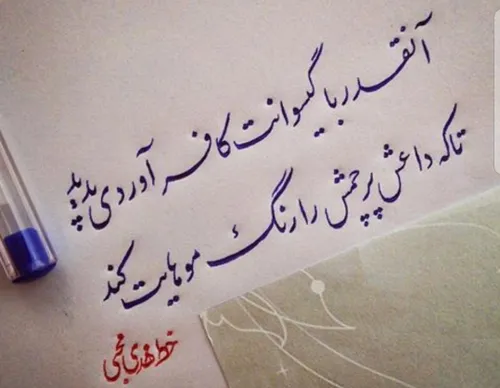 آنقدر با گیسوانت کافر آوردی پدید
تا که داعش پرچمش را رنگ موهایت کند
خط مهدی فتحی